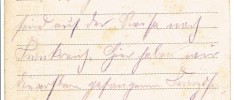 sind auf der Reise nach
Frankreich. Hier haben wir
die ersten gefangenen